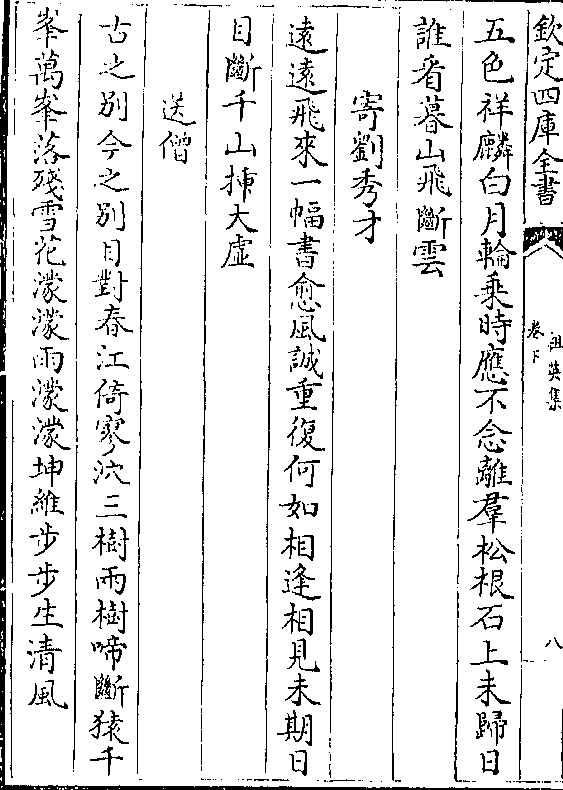 欽定四庫全書
祖英集
卷下
八
五色祥麟白月輪乘時應不念離羣松根石上未歸日
誰看暮山飛斷雲
寄劉秀才
遠遠飛來一幅書愈風誠重復何如相逢相見未期日
目斷千山挿大虛
送僧
古之别今之别目對春江倚寥泬三樹兩樹啼斷猿千
峯萬峯落殘雪花濛濛雨濛濛坤維步步生清風